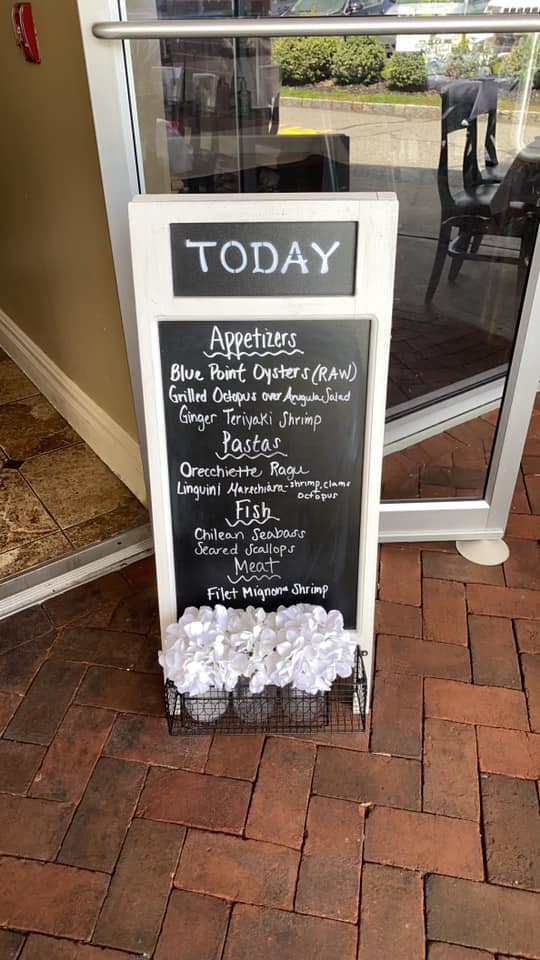 TODAY
Appetizers
Blue Point Oysters (RAW)
Grilled Octopus over Arugula Salad
Ginger Teriyaki Shrimp
Pastas
Orecchiette Ragu
Linguini Marechiara - shrimp, clams
octopus
Fish
Chilean Seabass
Seared Scallops
Meat
Filet Mignon & Shrimp